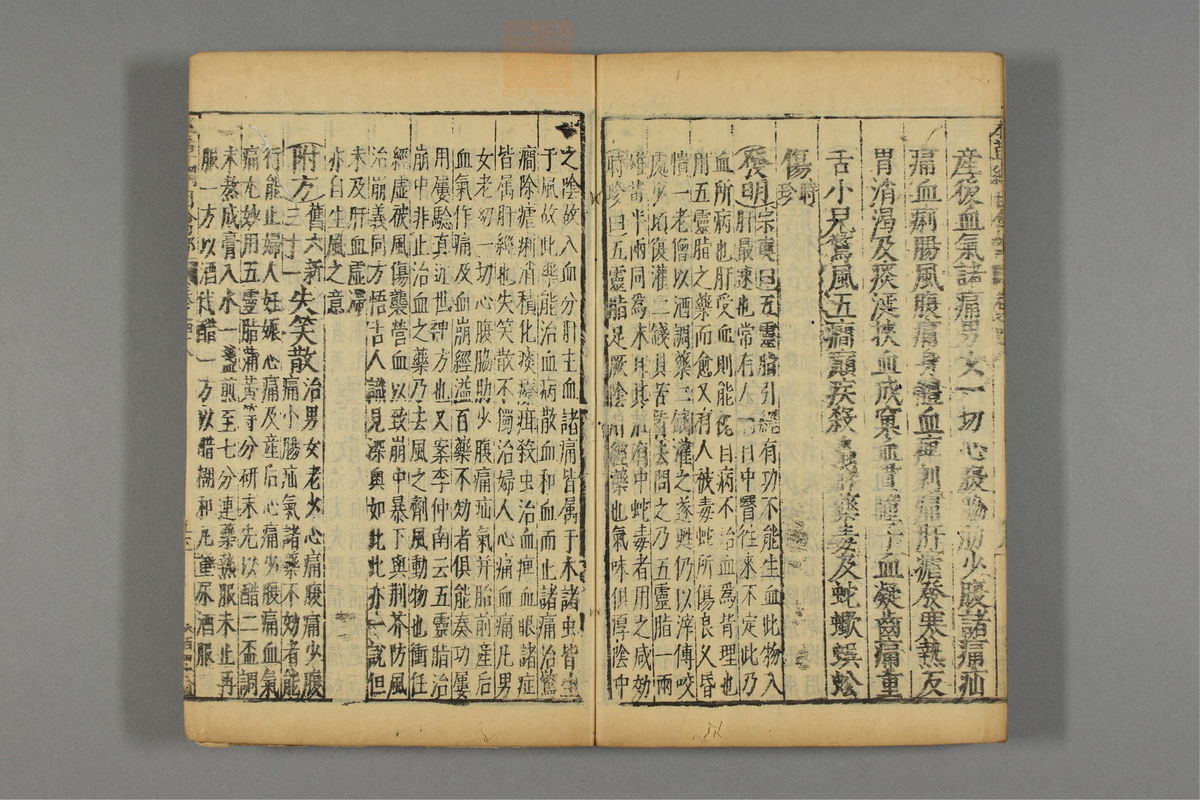 産後血氣諸痛男女一切心腹脇肋少腹諸痛疝
痛血痢腸風腹痛身體血痺刺痛肝瘧發寒熱反
胃消渴及痰涎挾血成窠血貫瞳子血凝齒痛重
舌小兒驚風五癇癲疾殺蟲解藥毒及蛇蠍蜈蚣
傷時珍
發明宗奭曰五靈脂引經有功不能生血此物入
肝最速也常有人一目中瞖往來不定此乃
血所病也肝受血則能視目病不治血爲背理也
用五靈脂之藥而愈又有人被毒蛇所傷良久昏
憒一老僧以酒調藥二錢灌之遂甦仍以滓傅咬
處少頃復灌二錢其苦皆去問之乃五靈脂一兩
雄黃半兩同為末耳其後有中蛇毒者用之咸効
時珍曰五靈脂足厥陰肝經藥也氣味俱厚陰中
之陰故入血分肝主血諸痛皆属于木諸虫皆生
于風故此藥能治血病散血和血而止諸痛治驚
癇除瘧痢消積化痰療疳殺虫治血痺血眼諸症
皆属肝經也失笑散不獨治婦人心痛血痛凡男
女老幼一切心腹脇肋少腹痛疝氣并胎前産后
血氣作痛及血崩經溢百藥不効者俱能奏功屢
用屢驗真近世神方也又案李仲南云五靈脂治
崩中非止治血之藥乃去風之劑風動物也衝任
經虚被風傷襲營血以致崩中暴下與荆芥防風
治崩義同方悟古人識見深奥如此此亦一說但
未及肝血虚滯
亦自生風之意
附方舊六新三十一失笑散治男女老少心痛腹痛少腹
痛小腸疝氣諸藥不効者能
行能止婦人妊娠心痛及産后心痛少腹痛血氣
痛尤妙用五靈脂蒲黃等分研末先以醋二盃調
末熬成膏入水一盞煎至七分連藥熱服未止再
服一方以酒代醋一方以醋糊和丸童尿酒服